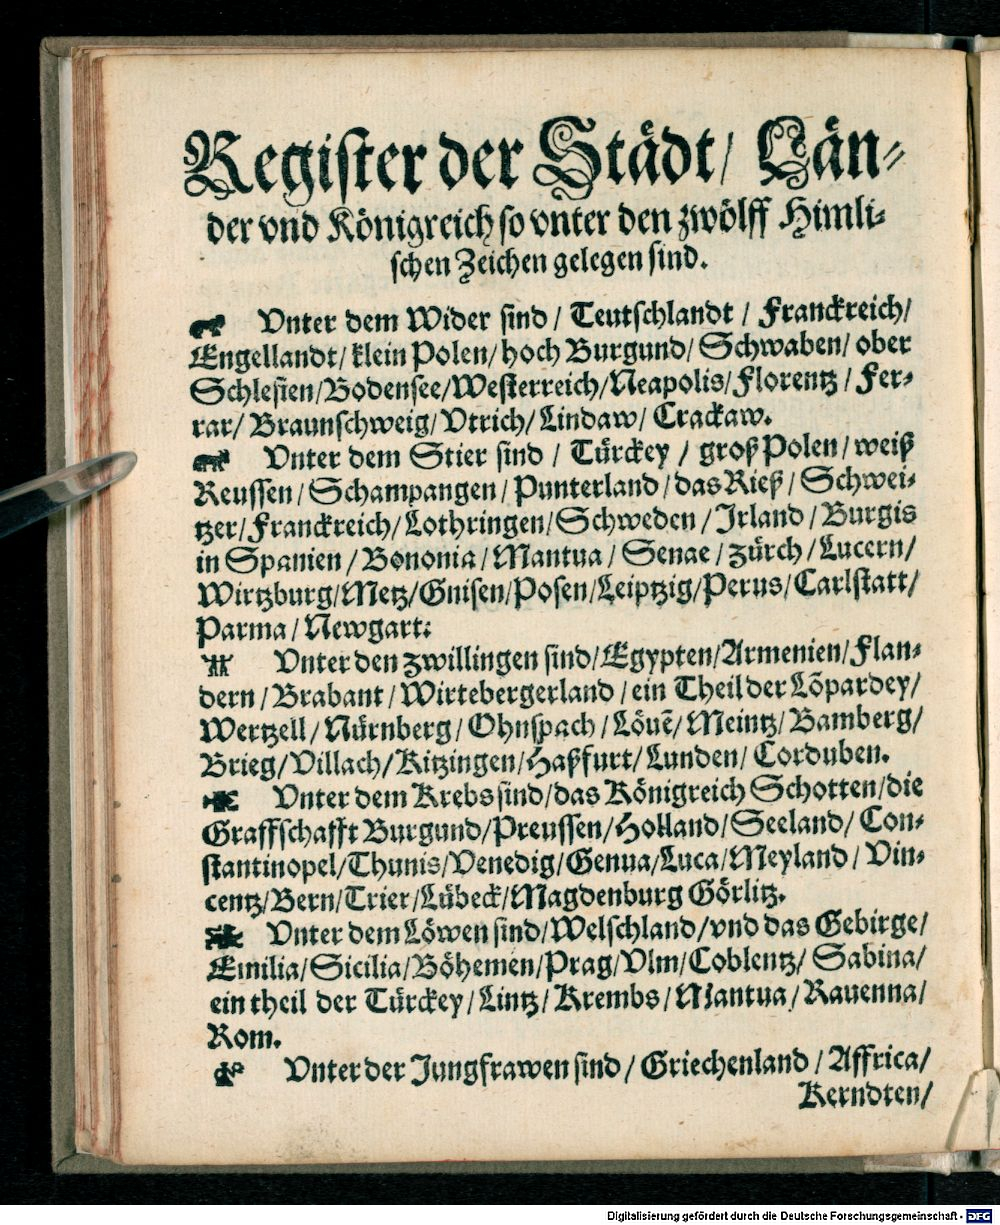 Register der Städt/ Län⸗
der vnd Königreich so vnter den zwölff Himli⸗
schen Zeichen gelegen sind.
Vnter dem Wider sind / Teutschlandt / Franckreich/
Engellandt/ klein Polen/ hoch Burgund/ Schwaben/ ober
Schlesien/Bodensee/Westerreich/Neapolis/Florentz / Fer⸗
rar/ Braunschweig/ Vtrich/ Lindaw/ Crackaw.
Vnter dem Stier sind / Türckey / groß Polen/ weiß
Reussen / Schampangen / Punterland / das Rieß / Schwei⸗
tzer/Franckreich/Lothringen/Schweden / Irland / Burgis
in Spanien / Bononia / Mantua / Senae / Zürch / Lucern/
Wirtzburg/Metz/Gnisen/Posen/Leiptzig/Perus/Carlstatt/
Parma / Newgart:
Vnter den Zwillingen sind/Egypten/Armenien/Flan⸗
dern / Brabant / Wirtebergerland / ein Theil der Lõpardey/
Wertzell / Nürnberg / Ohnspach / Löuẽ / Meintz / Bamberg/
Brieg/Villach/Kitzingen/Haßfurt/Lunden/ Corduben.
Vnter dem Krebs sind/das Königreich Schotten/die
Graffschafft Burgund/Preussen/Holland/Seeland/ Con⸗
stantinopel/Thunis/Venedig/Genua/Luca/Meyland / Vin⸗
centz/Bern/Trier/Lübeck/Magdenburg Görlitz.
Vnter dem Löwen sind/Welschland/vnd das Gebirge/
Emilia/Sicilia/Böhemen/Prag/Vlm/Coblentz/ Sabina/
ein theil der Türckey/ Lintz/ Krembs/ Mantua/ Rauenna/
Rom.
Vnter der Jungfrawen sind / Griechenland / Affrica/
Kerndten/
Digitalisierung gefördert durch die Deutsche Forschungsgemeinschaft - DFG